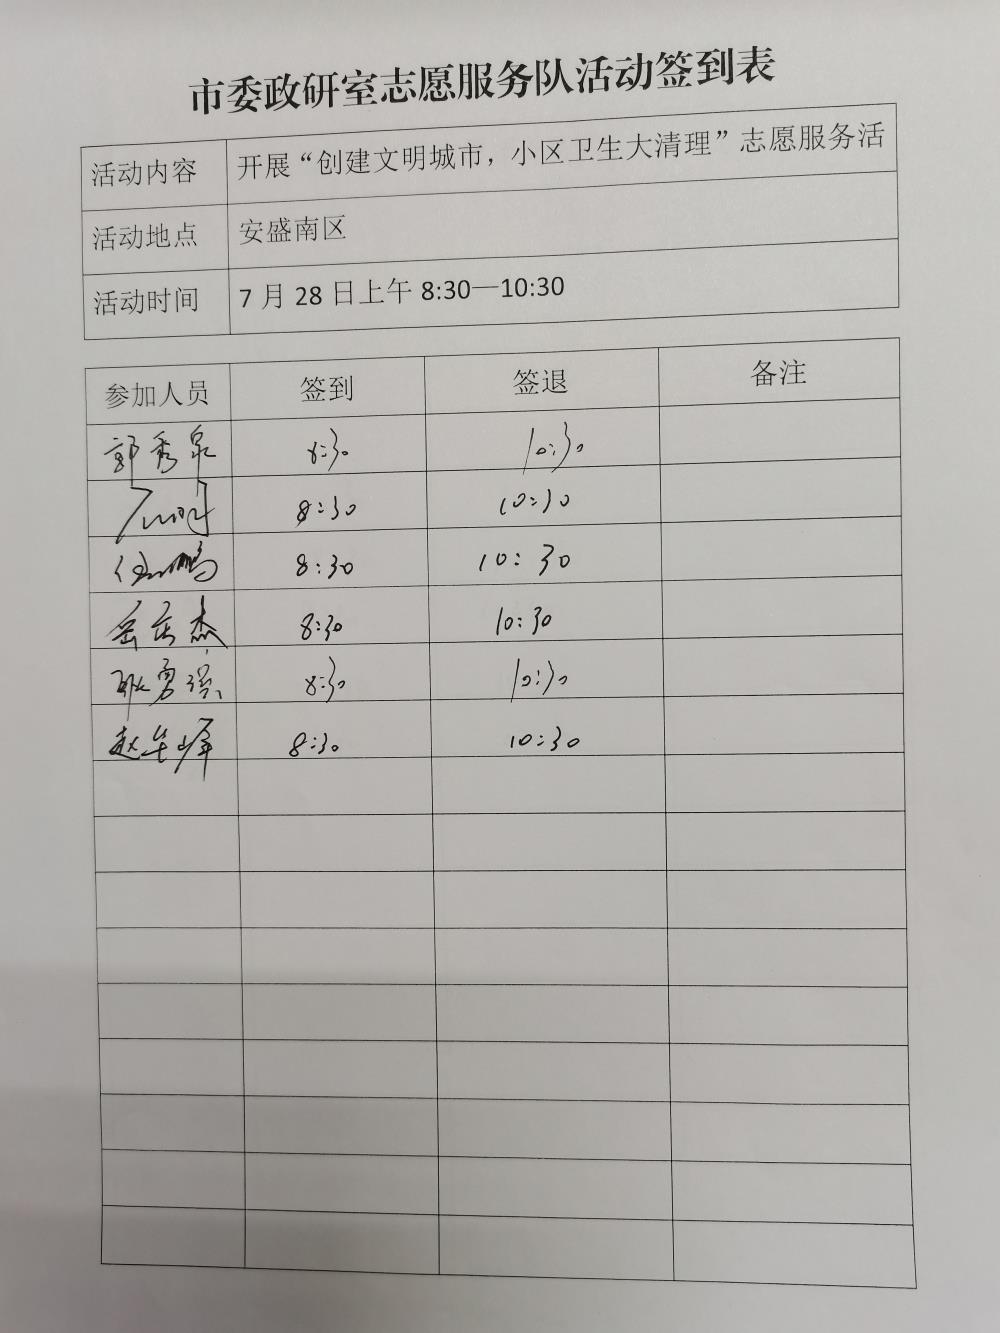 市委政研室志愿服务队活动签到表
活动内容 开展“创建文明城市，小区卫生大清理”志愿服务活
活动地点 安盛南区
活动时间 7月28日上午8:30—10:30
参加人员 签到 签退 备注
郭秀泉 8:30 10:30
8:30 10:30
任鹏 8:30 10:30
杰 8:30 10:30
耿勇强 8:30 10:30
赵华峰 8:30 10:30